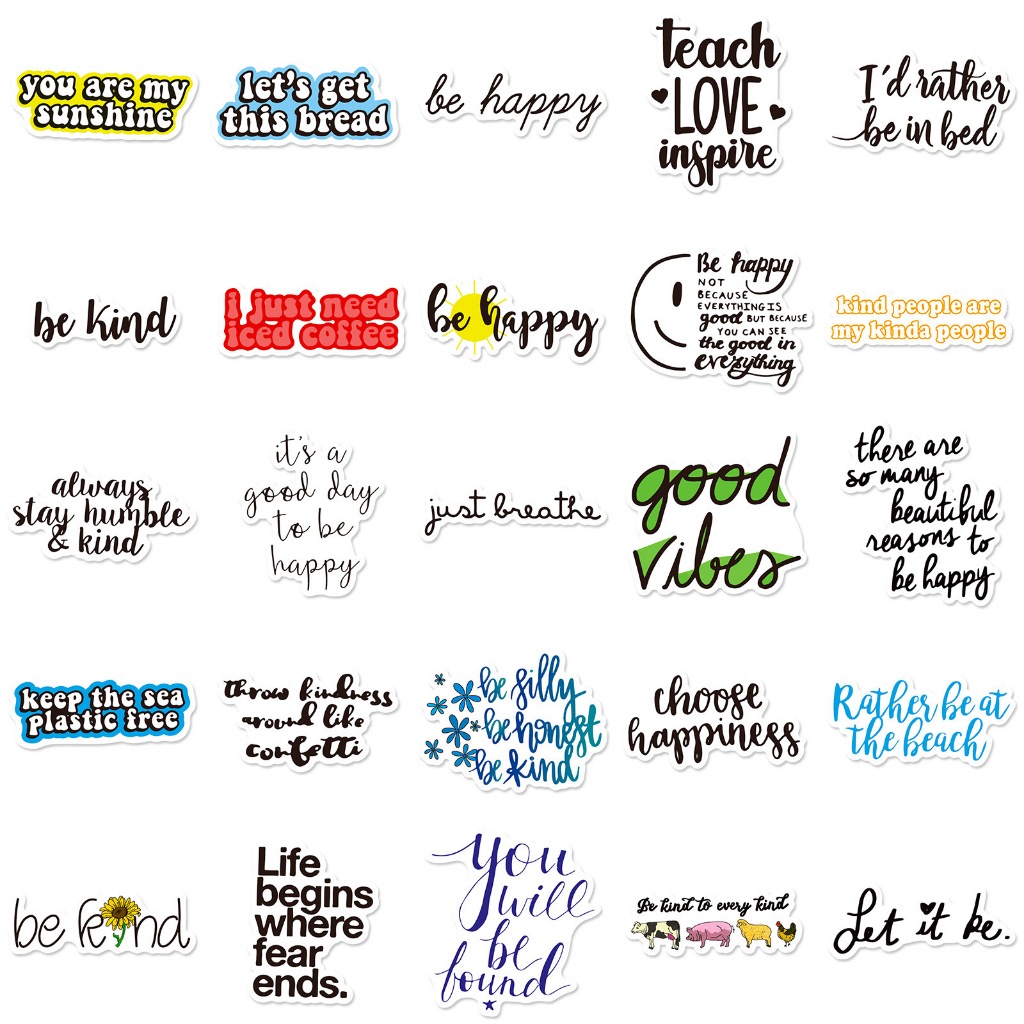 you are my
sunshine
let's get
this bread
be happy
teach
LOVE
inspire
I'd rather
be in bed
be kind
i just need
iced coffee
be happy
Be happy
NOT
BECAUSE
EVERYTHING IS
good BUT BECAUSE
YOU CAN SEE
the good in
everything
kind people are
my kinda people
always
stay humble
& kind
it's a
good day
to be
happy
just breathe
good
vibes
there are
so many
beautiful
reasons to
be happy
keep the sea
plastic free
throw kindness
around like
confetti
be silly
be honest
be kind
choose
happiness
Rather be at
the beach
be kind
Life
begins
where
fear
ends.
You
will
be
found
Be kind to every kind
Let it be.